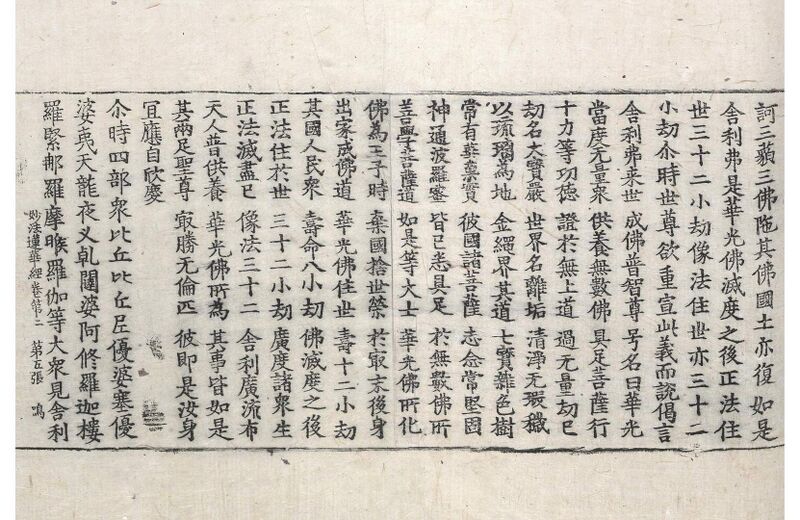 訶三藐三佛陁其佛國土亦復如是
舍利弗是華光佛滅度之後正法住
世三十二小劫像法住世亦三十二
小劫尒時世尊欲重宣此義而說偈言
舍利弗來世 成佛普智尊 号名曰華光
當度无量衆 供養無數佛 具足菩薩行
十力等功德 證於無上道 過无量劫已
劫名大寶嚴 世界名離垢 清淨无瑕穢
以琉璃爲地 金繩界其道 七寶雜色樹
常有華菓實 彼國諸菩薩 志念常堅固
神通波羅蜜 皆已悉具足 於無數佛所
善學菩薩道 如是等大士 華光佛所化
佛爲王子時 棄國捨世榮 於冣末後身
出家成佛道 華光佛住世 壽十二小劫
其國人民衆 壽命八小劫 佛滅度之後
正法住於世 三十二小劫 廣度諸衆生
正法滅盡已 像法三十二 舍利廣流布
天人普供養 華光佛所爲 其事皆如是
其兩足聖尊 冣勝无倫匹 彼即是汝身
宜應自欣慶
尒時四部衆比丘比丘尼優婆塞優
婆夷天龍夜叉乹闥婆阿修羅迦樓
羅緊那羅摩睺羅伽等大衆見舍利
妙法蓮華經卷第二 第五張 鳴